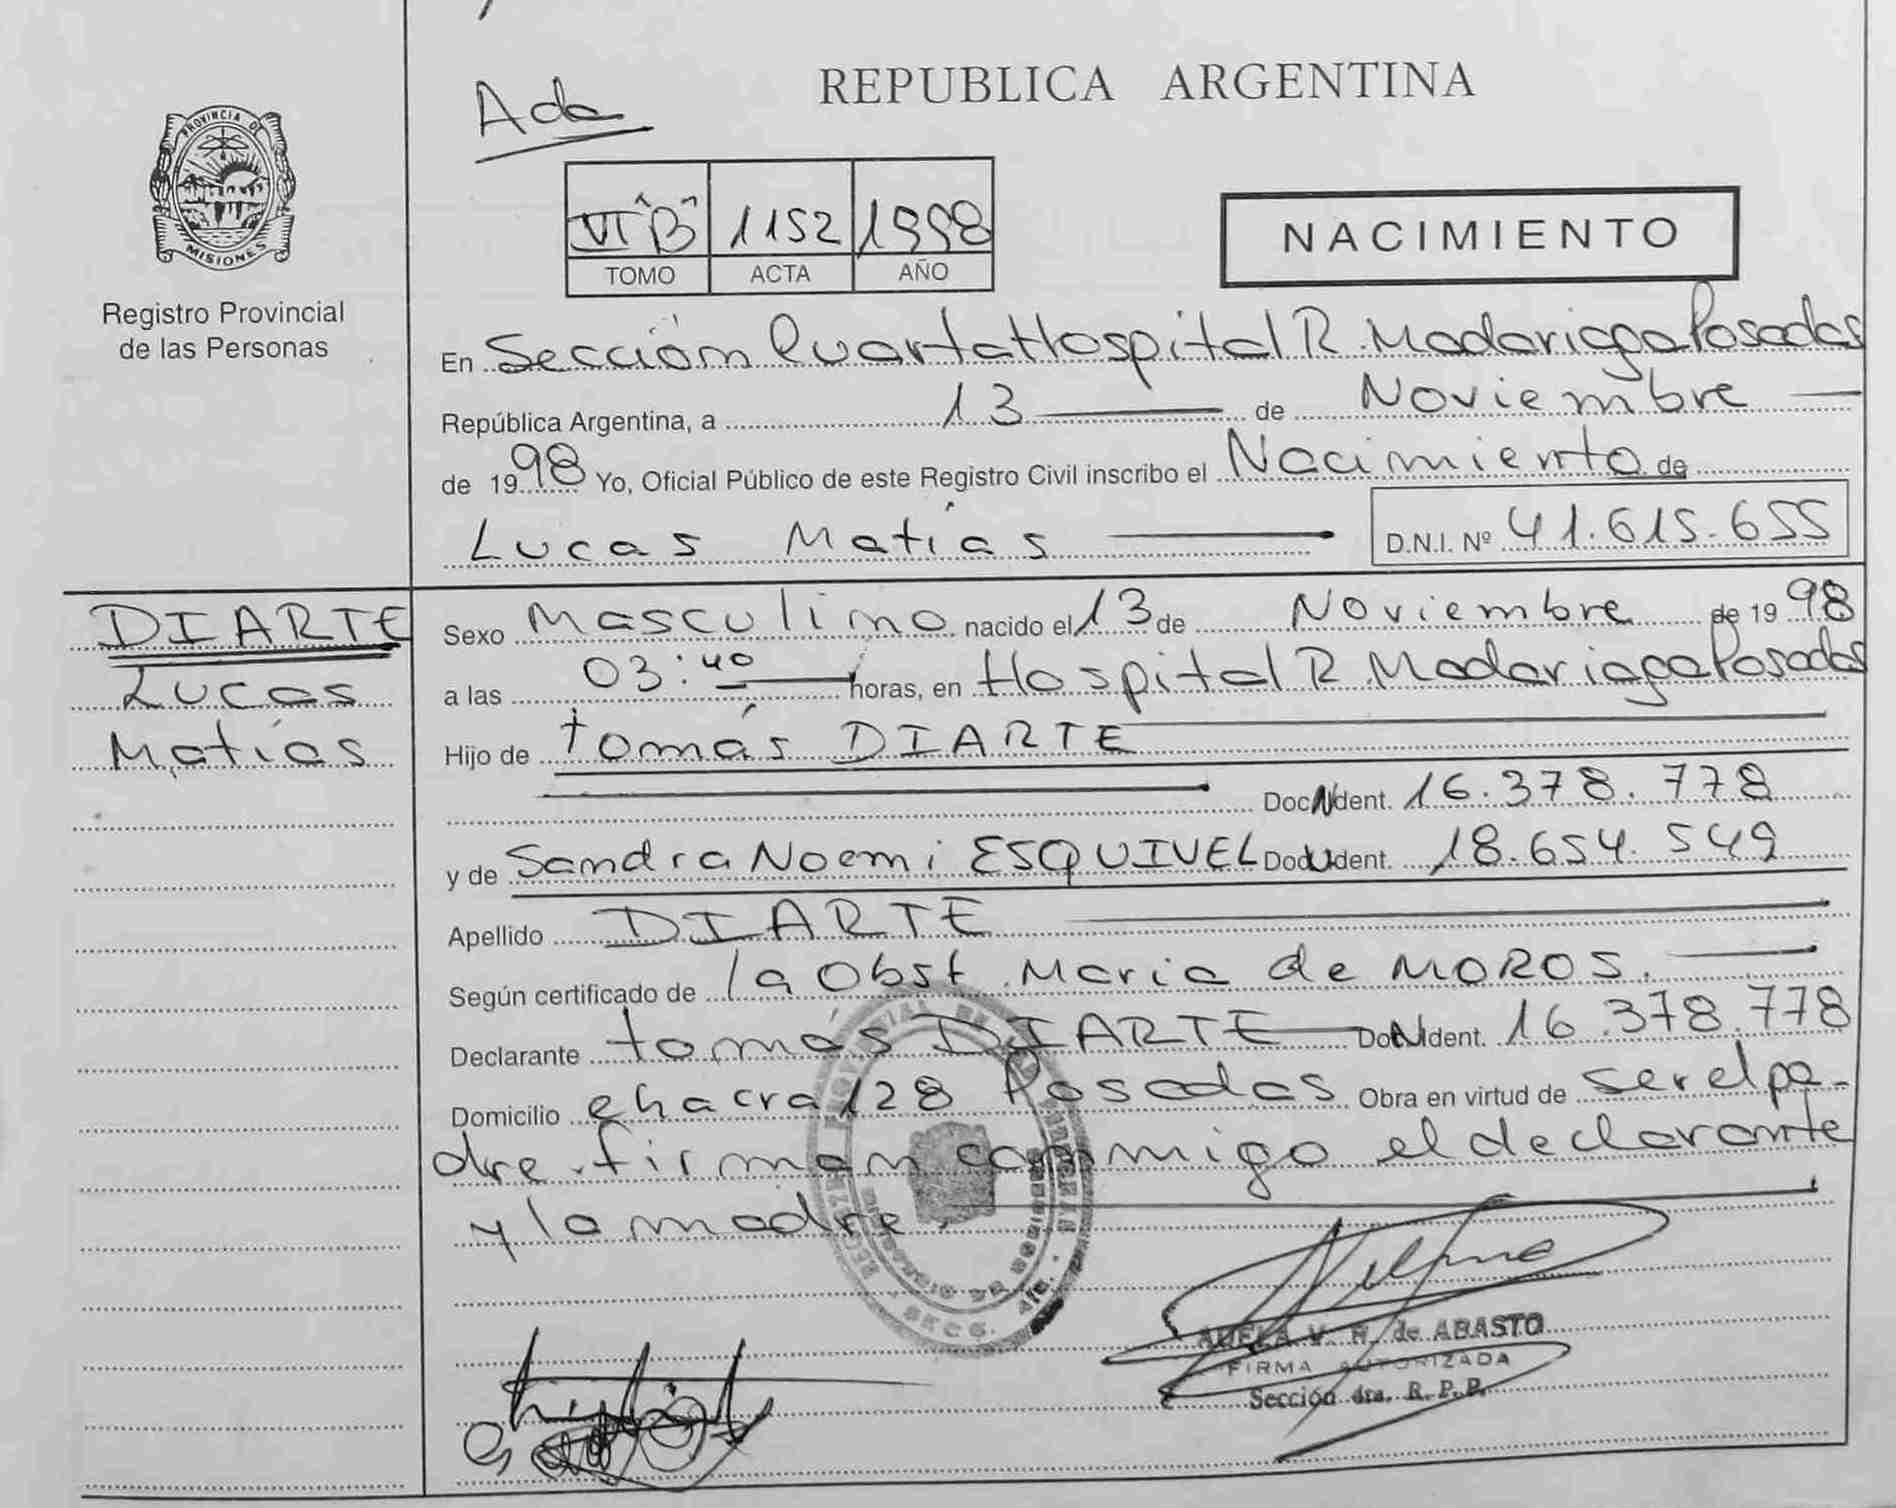 Ada
REPUBLICA ARGENTINA
PROVINCIA DE
MISIONES
Registro Provincial
de las Personas
VI "B" 1152 1998
TOMO ACTA AÑO
NACIMIENTO
En Sección Cuarta Hospital R. Madariaga Posadas
República Argentina, a 13 de Noviembre
de 1998 Yo, Oficial Público de este Registro Civil inscribo el Nacimiento de
Lucas Matías D.N.I. Nº 41.615.655
DIARTE
Lucas
Matías
Sexo Masculino nacido el 13 de Noviembre de 1998
a las 03:40 horas, en Hospital R. Madariaga Posadas
Hijo de tomás DIARTE
Doc. N Ident. 16.378.778
y de Sandra Noemi ESQUIVEL Doc. U Ident. 18.654.549
Apellido DIARTE
Según certificado de la Obst. Maria de MOROS.
Declarante tomás DIARTE Doc. N Ident. 16.378.778
Domicilio chacra 128 Posadas Obra en virtud de ser el pa-
dre. firman conmigo el declarante
y la madre.
V. R. de ABASTO
FIRMA AUTORIZADA
Sección 4ta. R. P. P.